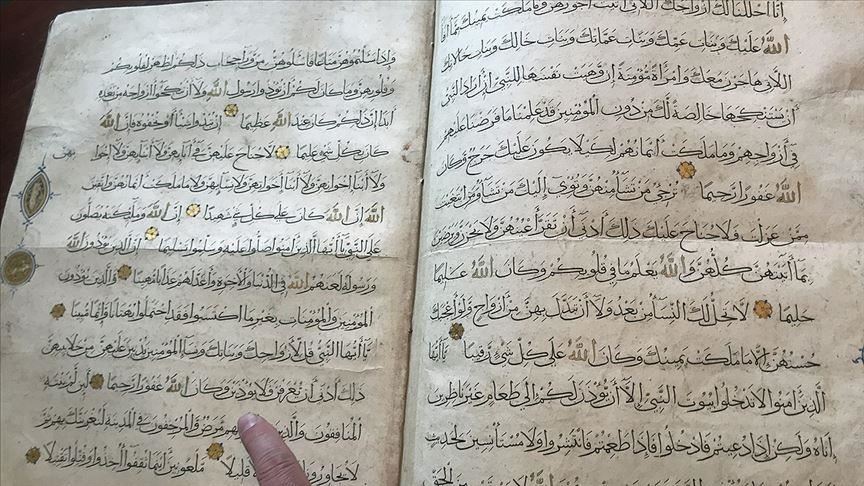 إنا أحللنا لك أزواجك اللاتي آتيت أجورهن وما ملكت يمينك مما أفاء
الله عليك وبنات عمك وبنات عماتك وبنات خالك وبنات خالاتك
اللاتي هاجرن معك وامرأة مؤمنة إن وهبت نفسها للنبي إن أراد النبي
أن يستنكحها خالصة لك من دون المؤمنين قد علمنا ما فرضنا عليهم
في أزواجهم وما ملكت أيمانهم لكيلا يكون عليك حرج وكان
الله غفورا رحيما ترجي من تشاء منهن وتؤوي إليك من تشاء ومن ابتغيت
ممن عزلت فلا جناح عليك ذلك أدنى أن تقر أعينهن ولا يحزن ويرضين
بما آتيتهن كلهن والله يعلم ما في قلوبكم وكان الله عليما
حليما لا يحل لك النساء من بعد ولا أن تبدل بهن من أزواج ولو أعجبك
حسنهن إلا ما ملكت يمينك وكان الله على كل شيء رقيبا يا أيها
الذين آمنوا لا تدخلوا بيوت النبي إلا أن يؤذن لكم إلى طعام غير ناظرين
إناه ولكن إذا دعيتم فادخلوا فإذا طعمتم فانتشروا ولا مستأنسين لحديث
الحق
وإذا سألتموهن متاعا فاسألوهن من وراء حجاب ذلكم أطهر لقلوبكم
وقلوبهن وما كان لكم أن تؤذوا رسول الله ولا أن تنكحوا أزواجه من بعده
أبدا إن ذلكم كان عند الله عظيما إن تبدوا شيئا أو تخفوه فإن الله
كان بكل شيء عليما لا جناح عليهن في آبائهن ولا أبنائهن ولا إخوانهن
ولا أبناء إخوانهن ولا أبناء أخواتهن ولا نسائهن ولا ما ملكت أيمانهن واتقين
الله إن الله كان على كل شيء شهيدا إن الله وملائكته يصلون
على النبي يا أيها الذين آمنوا صلوا عليه وسلموا تسليما إن الذين يؤذون الله
ورسوله لعنهم الله في الدنيا والآخرة وأعد لهم عذابا مهينا والذين يؤذون
المؤمنين والمؤمنات بغير ما اكتسبوا فقد احتملوا بهتانا وإثما مبينا
يا أيها النبي قل لأزواجك وبناتك ونساء المؤمنين يدنين عليهن من جلابيبهن
ذلك أدنى أن يعرفن فلا يؤذين وكان الله غفورا رحيما لئن لم ينته
المنافقون والذين قلوبهم مرض والمرجفون في المدينة لنغرينك بهم ثم
لا يجاورونك قليلا ملعونين أينما ثقفوا أخذوا وقتلوا تقتيلا